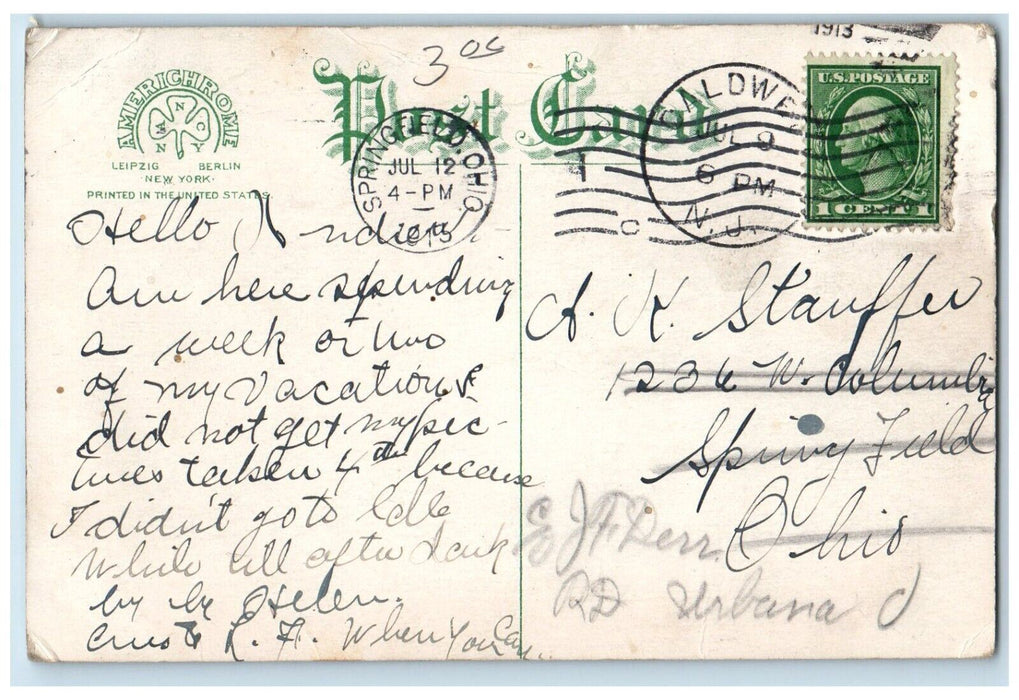 1913
3 00
Post Card
AMERICHROME
A N N C Y
LEIPZIG BERLIN
NEW YORK
PRINTED IN THE UNITED STATES
SPRINGFIELD, OHIO
JUL 12
4-PM
1913
CALDWELL
JUL 9
6 PM
N. J.
U.S. POSTAGE
1 CENT 1
Hello
Am here spending
a week or two
of my vacation
did not get my pic-
tures taken 4th because
I didn't go to
while till after dark
by by Helen.
R. F. When You Can
A. K. Stauffer
1236 W. Columbia
Spring Field
Ohio
J F Derr
RD Urbana O